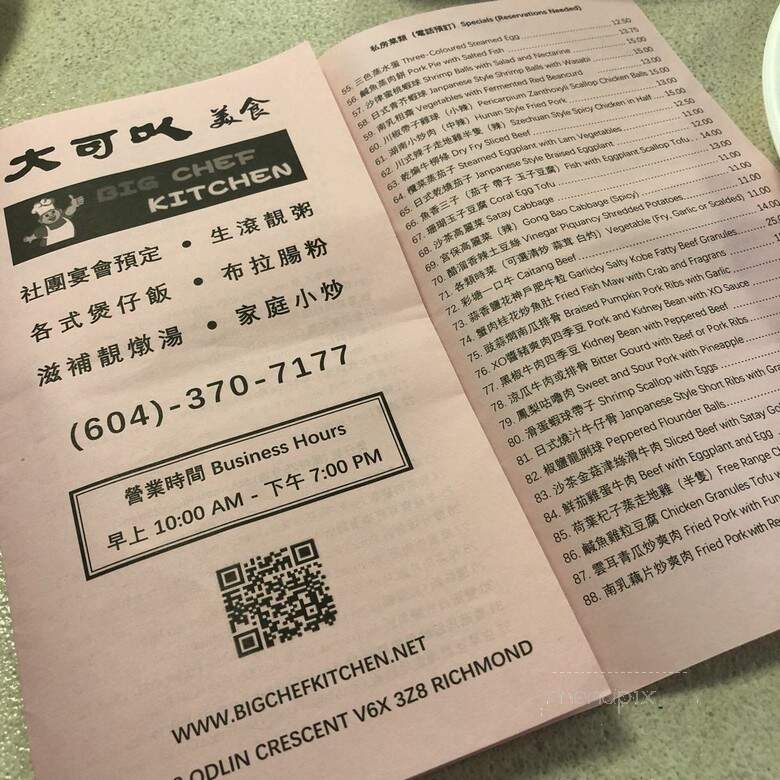 大可以 美食
BIG CHEF
KITCHEN
社團宴會預定 • 生滾靚粥
各式煲仔飯 • 布拉腸粉
滋補靚燉湯 • 家庭小炒
(604)-370-7177
營業時間 Business Hours
早上 10:00 AM - 下午 7:00 PM
WWW.BIGCHEFKITCHEN.NET
ODLIN CRESCENT V6X 3Z8 RICHMOND
私房菜類（電話預訂）Specials (Reservations Needed)
55. 三色蒸水蛋 Three-Coloured Steamed Egg 12.50
56. 鹹魚蒸肉餅 Pork Pie with Salted Fish 13.75
57. 沙律蜜桃蝦球 Shrimp Balls with Salad and Nectarine 15.00
58. 日式青芥蝦球 Janpanese Style Shrimp Balls with Wasabi 15.00
59. 南乳粗齋 Vegetables with Fermented Red Beancurd 13.00
60. 川椒帶子雞球（小辣）Pericarpium Zanthoxyli Scallop Chicken Balls 15.00
61. 湖南小炒肉（中辣）Hunan Style Fried Pork 13.00
62. 川式辣子走地雞半隻（辣）Szechuan Style Spicy Chicken in Half 15.00
63. 乾煸牛柳條 Dry Fry Sliced Beef 12.50
64. 欖菜蒸茄子 Steamed Eggplant with Lam Vegetables 11.00
65. 日式乾燒茄子 Janpanese Style Braised Eggplant 12.00
66. 魚香三子（茄子 帶子 玉子豆腐）Fish with Eggplant Scallop Tofu 14.00
67. 珊瑚玉子豆腐 Coral Egg Tofu 13.00
68. 沙茶高麗菜 Satay Cabbage 11.00
69. 宮保高麗菜（辣）Gong Bao Cabbage (Spicy) 11.00
70. 醋溜香辣土豆絲 Vinegar Piquancy Shredded Potatoes 11.00
71. 各類時菜（可選清炒 蒜茸 白灼）Vegetable (Fry, Garlic or Scalded) 11.00
72. 彩塘一口牛 Caitang Beef 14.00
73. 蒜香鹽花神戶肥牛粒 Garlicky Salty Kobe Fatty Beef Granules
74. 蟹肉桂花炒魚肚 Fried Fish Maw with Crab and Fragrans
75. 豉蒜燜南瓜排骨 Braised Pumpkin Pork Ribs with Garlic
76. XO醬豬爽肉四季豆 Pork and Kidney Bean with XO Sauce
77. 黑椒牛肉四季豆 Kidney Bean with Peppered Beef
78. 涼瓜牛肉或排骨 Bitter Gourd with Beef or Pork Ribs
79. 鳳梨咕嚕肉 Sweet and Sour Pork with Pineapple
80. 滑蛋蝦球帶子 Shrimp Scallop with Eggs
81. 日式燒汁牛仔骨 Janpanese Style Short Ribs with
82. 椒鹽龍脷球 Peppered Flounder Balls
83. 沙茶金菇津絲滑牛肉 Sliced Beef with Satay
84. 鮮茄雞蛋牛肉 Beef with Eggplant and Egg
85. 荷葉杞子蒸走地雞（半隻）Free Range
86. 鹹魚雞粒豆腐 Chicken Granules Tofu
87. 雲耳青瓜炒爽肉 Fried Pork with
88. 南乳藕片炒爽肉 Fried Pork with
menupix